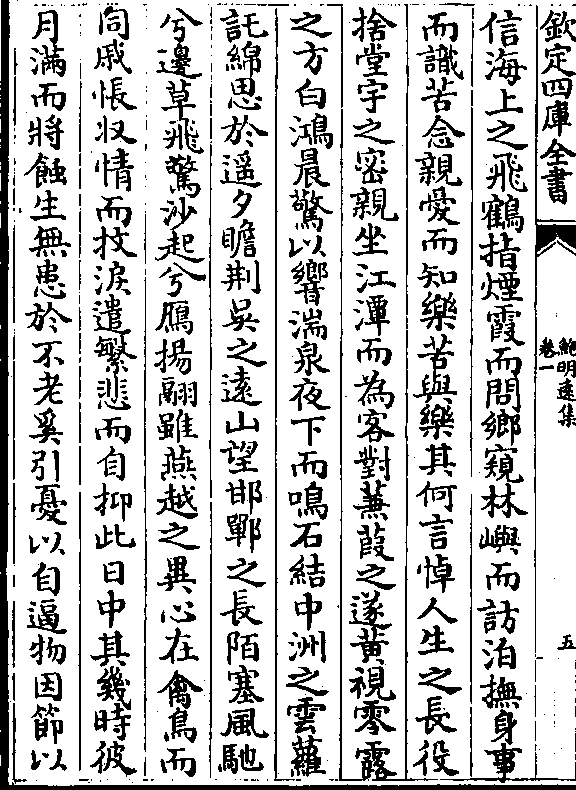 欽定四庫全書
鮑明遠集
卷一
五
信海上之飛鶴指煙霞而問鄉窺林嶼而訪泊撫身事
而識苦念親愛而知樂苦與樂其何言悼人生之長役
捨堂宇之密親坐江潭而為客對蒹葭之遂黃視零露
之方白鴻晨驚以響湍泉夜下而鳴石結中洲之雲蘿
託綿思於遥夕瞻荆吳之逺山望邯鄲之長陌塞風馳
兮邊草飛驚沙起兮鴈揚翮雖燕越之異心在禽鳥而
同戚悵収情而抆淚遣繁悲而自抑此日中其幾時彼
月滿而將蝕生無患於不老奚引憂以自逼物因節以